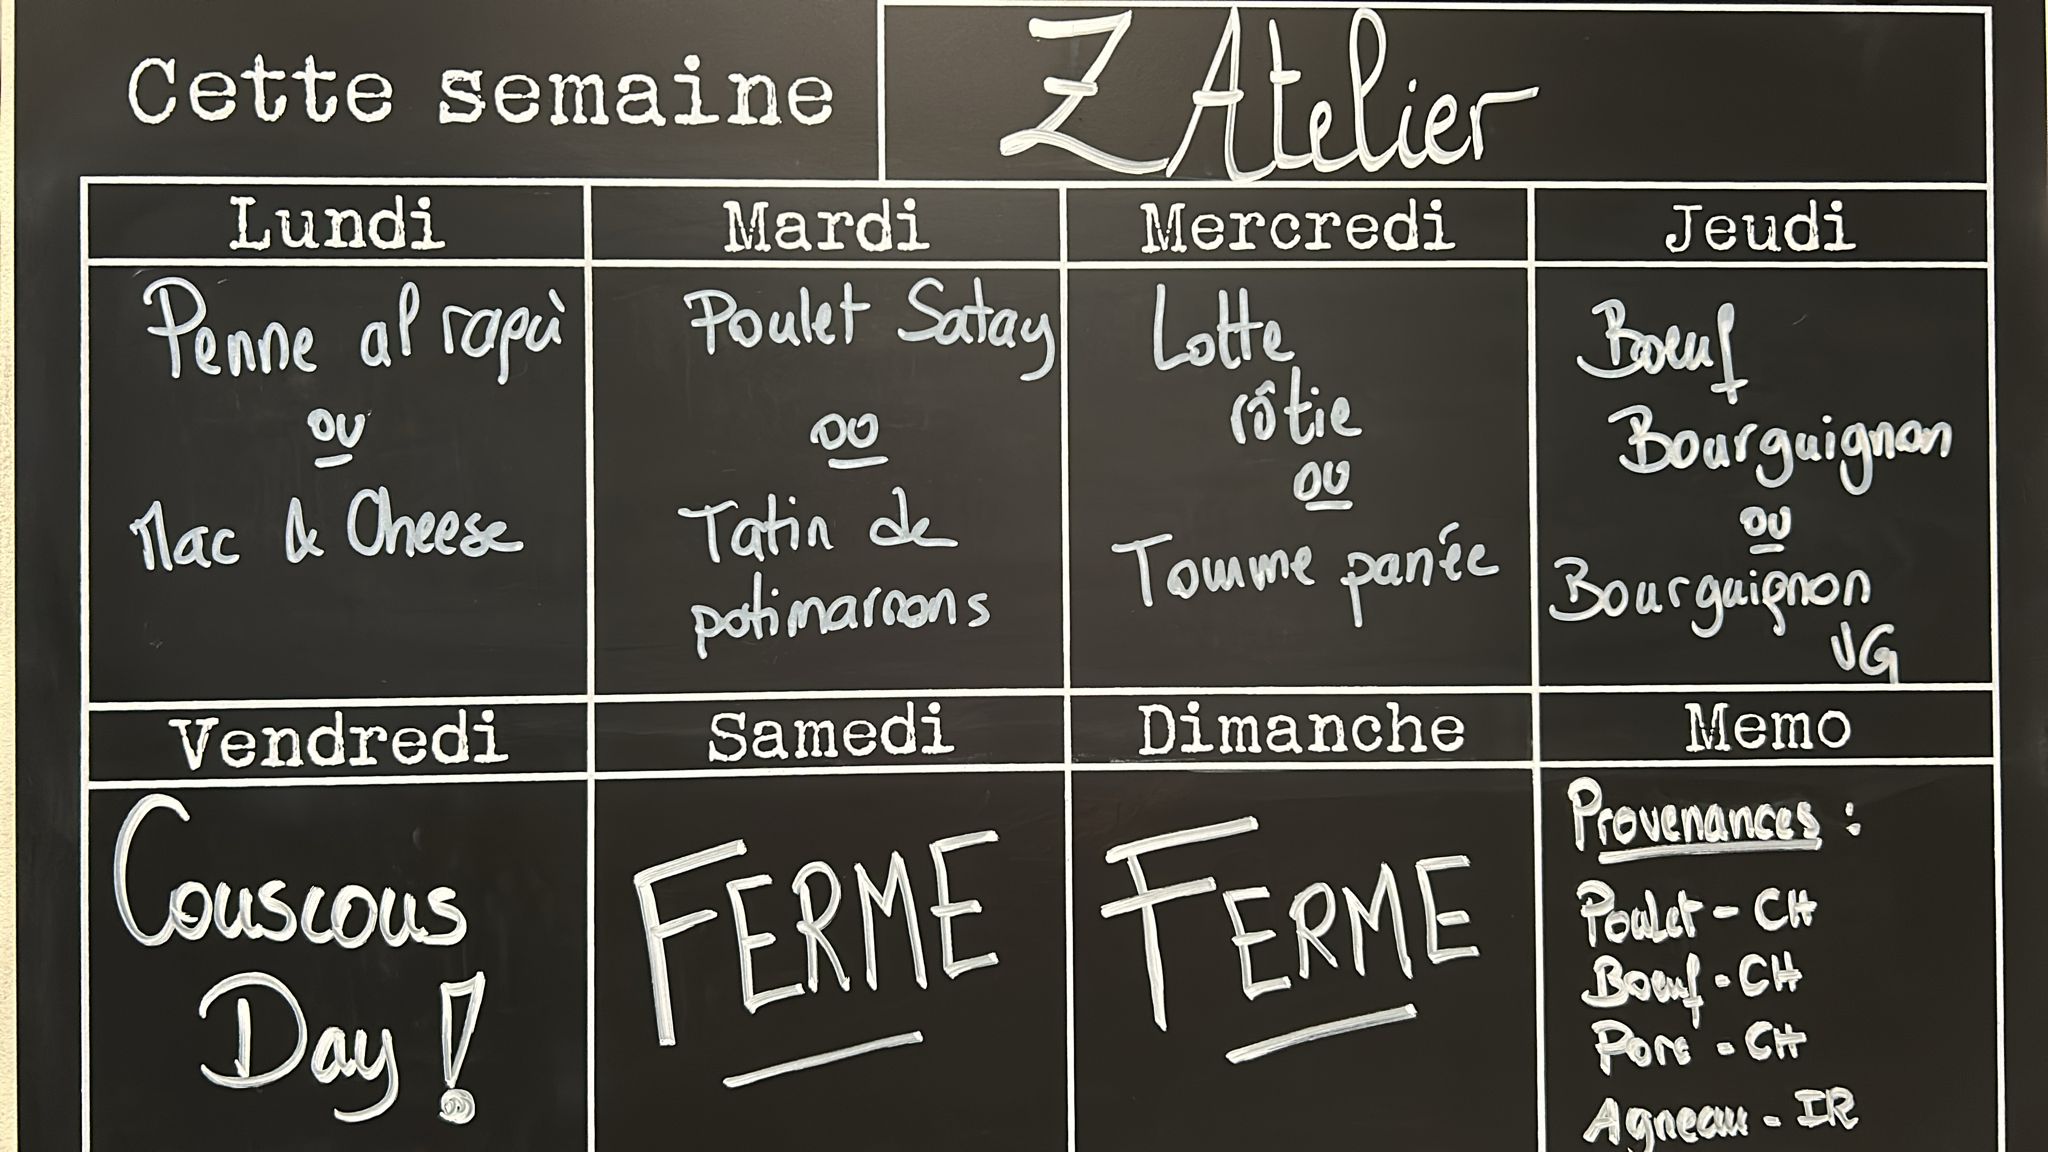 Cette semaine
ZAtelier
Lundi
Penne al ragù
ou
Mac & Cheese
Mardi
Poulet Satay
ou
Tatin de
potimarrons
Mercredi
Lotte
rôtie
ou
Tomme panée
Jeudi
Boeuf
Bourguignon
ou
Bourguignon
VG
Vendredi
Couscous
Day !
Samedi
FERME
Dimanche
FERME
Memo
Provenances :
Poulet - CH
Boeuf - CH
Porc - CH
Agneau - IR